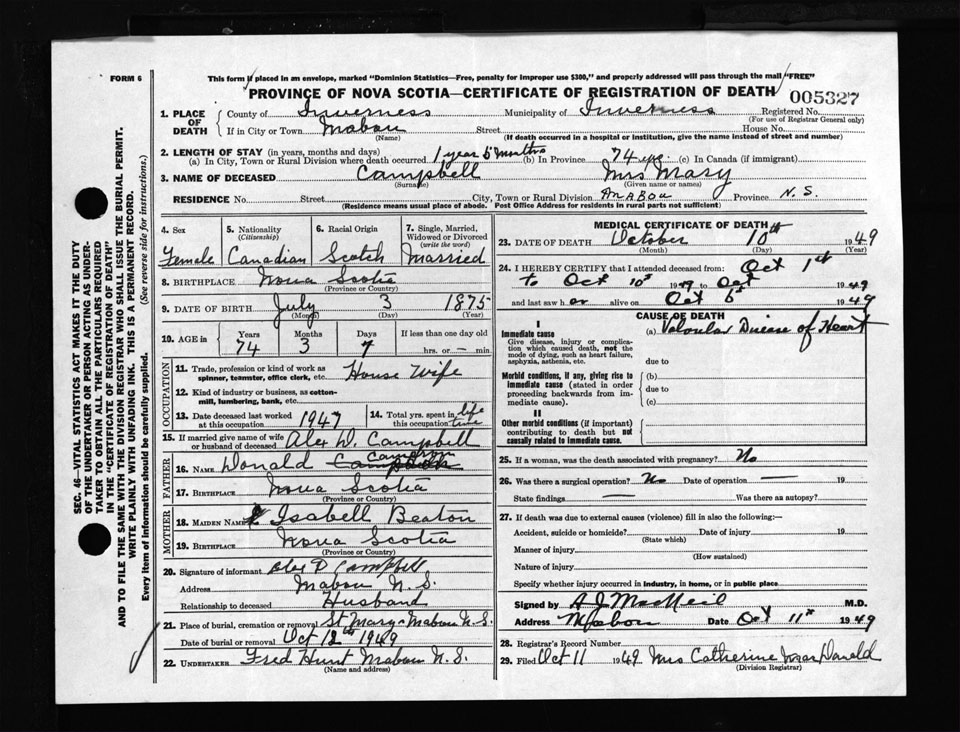 FORM 6
This form if placed in an envelope, marked "Dominion Statistics—Free, penalty for improper use $300," and properly addressed will pass through the mail "FREE"
PROVINCE OF NOVA SCOTIA—CERTIFICATE OF REGISTRATION OF DEATH
005327
1. PLACE OF DEATH
County of Inverness Municipality of Inverness Registered No.
(For use of Registrar General only)
If in City or Town Mabou Street House No.
(Name) (If death occurred in a hospital or institution, give the name instead of street and number)
2. LENGTH OF STAY (in years, months and days)
(a) In City, Town or Rural Division where death occurred 1 year 5 months (b) In Province 74 yrs. (c) In Canada (if immigrant)
3. NAME OF DECEASED Campbell Mrs Mary
(Surname) (Given name or names)
RESIDENCE No. Street City, Town or Rural Division Mabou Province N.S.
(Residence means usual place of abode. Post Office Address for residents in rural parts not sufficient)
4. Sex
Female
5. Nationality
(Citizenship)
Canadian
6. Racial Origin
Scotch
7. Single, Married, Widowed or Divorced
(write the word)
Married
8. BIRTHPLACE Nova Scotia
(Province or Country)
9. DATE OF BIRTH July 3 1875
(Month) (Day) (Year)
10. AGE in Years Months Days If less than one day old
74 3 7 hrs. or — min
OCCUPATION
11. Trade, profession or kind of work as spinner, teamster, office clerk, etc. House Wife
12. Kind of industry or business, as cotton-mill, lumbering, bank, etc.
13. Date deceased last worked at this occupation 1947
14. Total yrs. spent in this occupation life time
15. If married give name of wife or husband of deceased Alex D. Campbell
FATHER
16. NAME Donald Cameron
17. BIRTHPLACE Nova Scotia
(Province or Country)
MOTHER
18. MAIDEN NAME Isabell Beaton
19. BIRTHPLACE Nova Scotia
(Province or Country)
20. Signature of informant Alex D Campbell
Address Mabou N.S.
Relationship to deceased Husband
21. Place of burial, cremation or removal St Marys Mabou N.S.
Date of burial or removal Oct 12th 1949
22. UNDERTAKER Fred Hunt Mabou N.S.
(Name and address)
MEDICAL CERTIFICATE OF DEATH
23. DATE OF DEATH October 10th 1949
(Month) (Day) (Year)
24. I HEREBY CERTIFY that I attended deceased from: Oct 1st
to Oct 10th 1949 to Oct 1949
and last saw her alive on Oct 1949
CAUSE OF DEATH
I
Immediate cause
Give disease, injury or complication which caused death, not the mode of dying, such as heart failure, asphyxia, asthenia, etc.
(a) Valvular Disease of Heart
due to
Morbid conditions, if any, giving rise to immediate cause (stated in order proceeding backwards from immediate cause).
(b)
due to
(c)
II
Other morbid conditions (if important) contributing to death but not causally related to immediate cause.
25. If a woman, was the death associated with pregnancy? No
26. Was there a surgical operation? No Date of operation — 19
State findings — Was there an autopsy?
27. If death was due to external causes (violence) fill in also the following:—
Accident, suicide or homicide? Date of injury 19
(State which)
Manner of injury
(How sustained)
Nature of injury
Specify whether injury occurred in industry, in home, or in public place
Signed by A J MacNeil M.D.
Address Mabou Date Oct 11th 1949
28. Registrar's Record Number
29. Filed Oct 11 1949 Mrs Catherine Donald
(Division Registrar)
SEC. 46—VITAL STATISTICS ACT MAKES IT THE DUTY
OF THE UNDERTAKER OR PERSON ACTING AS UNDER-
TAKER TO OBTAIN ALL THE PARTICULARS REQUIRED
IN THE "CERTIFICATE OF REGISTRATION OF DEATH"
AND TO FILE THE SAME WITH THE DIVISION REGISTRAR WHO SHALL ISSUE THE BURIAL PERMIT.
WRITE PLAINLY WITH UNFADING INK. THIS IS A PERMANENT RECORD.
Every item of information should be carefully supplied. (See reverse side for instructions.)